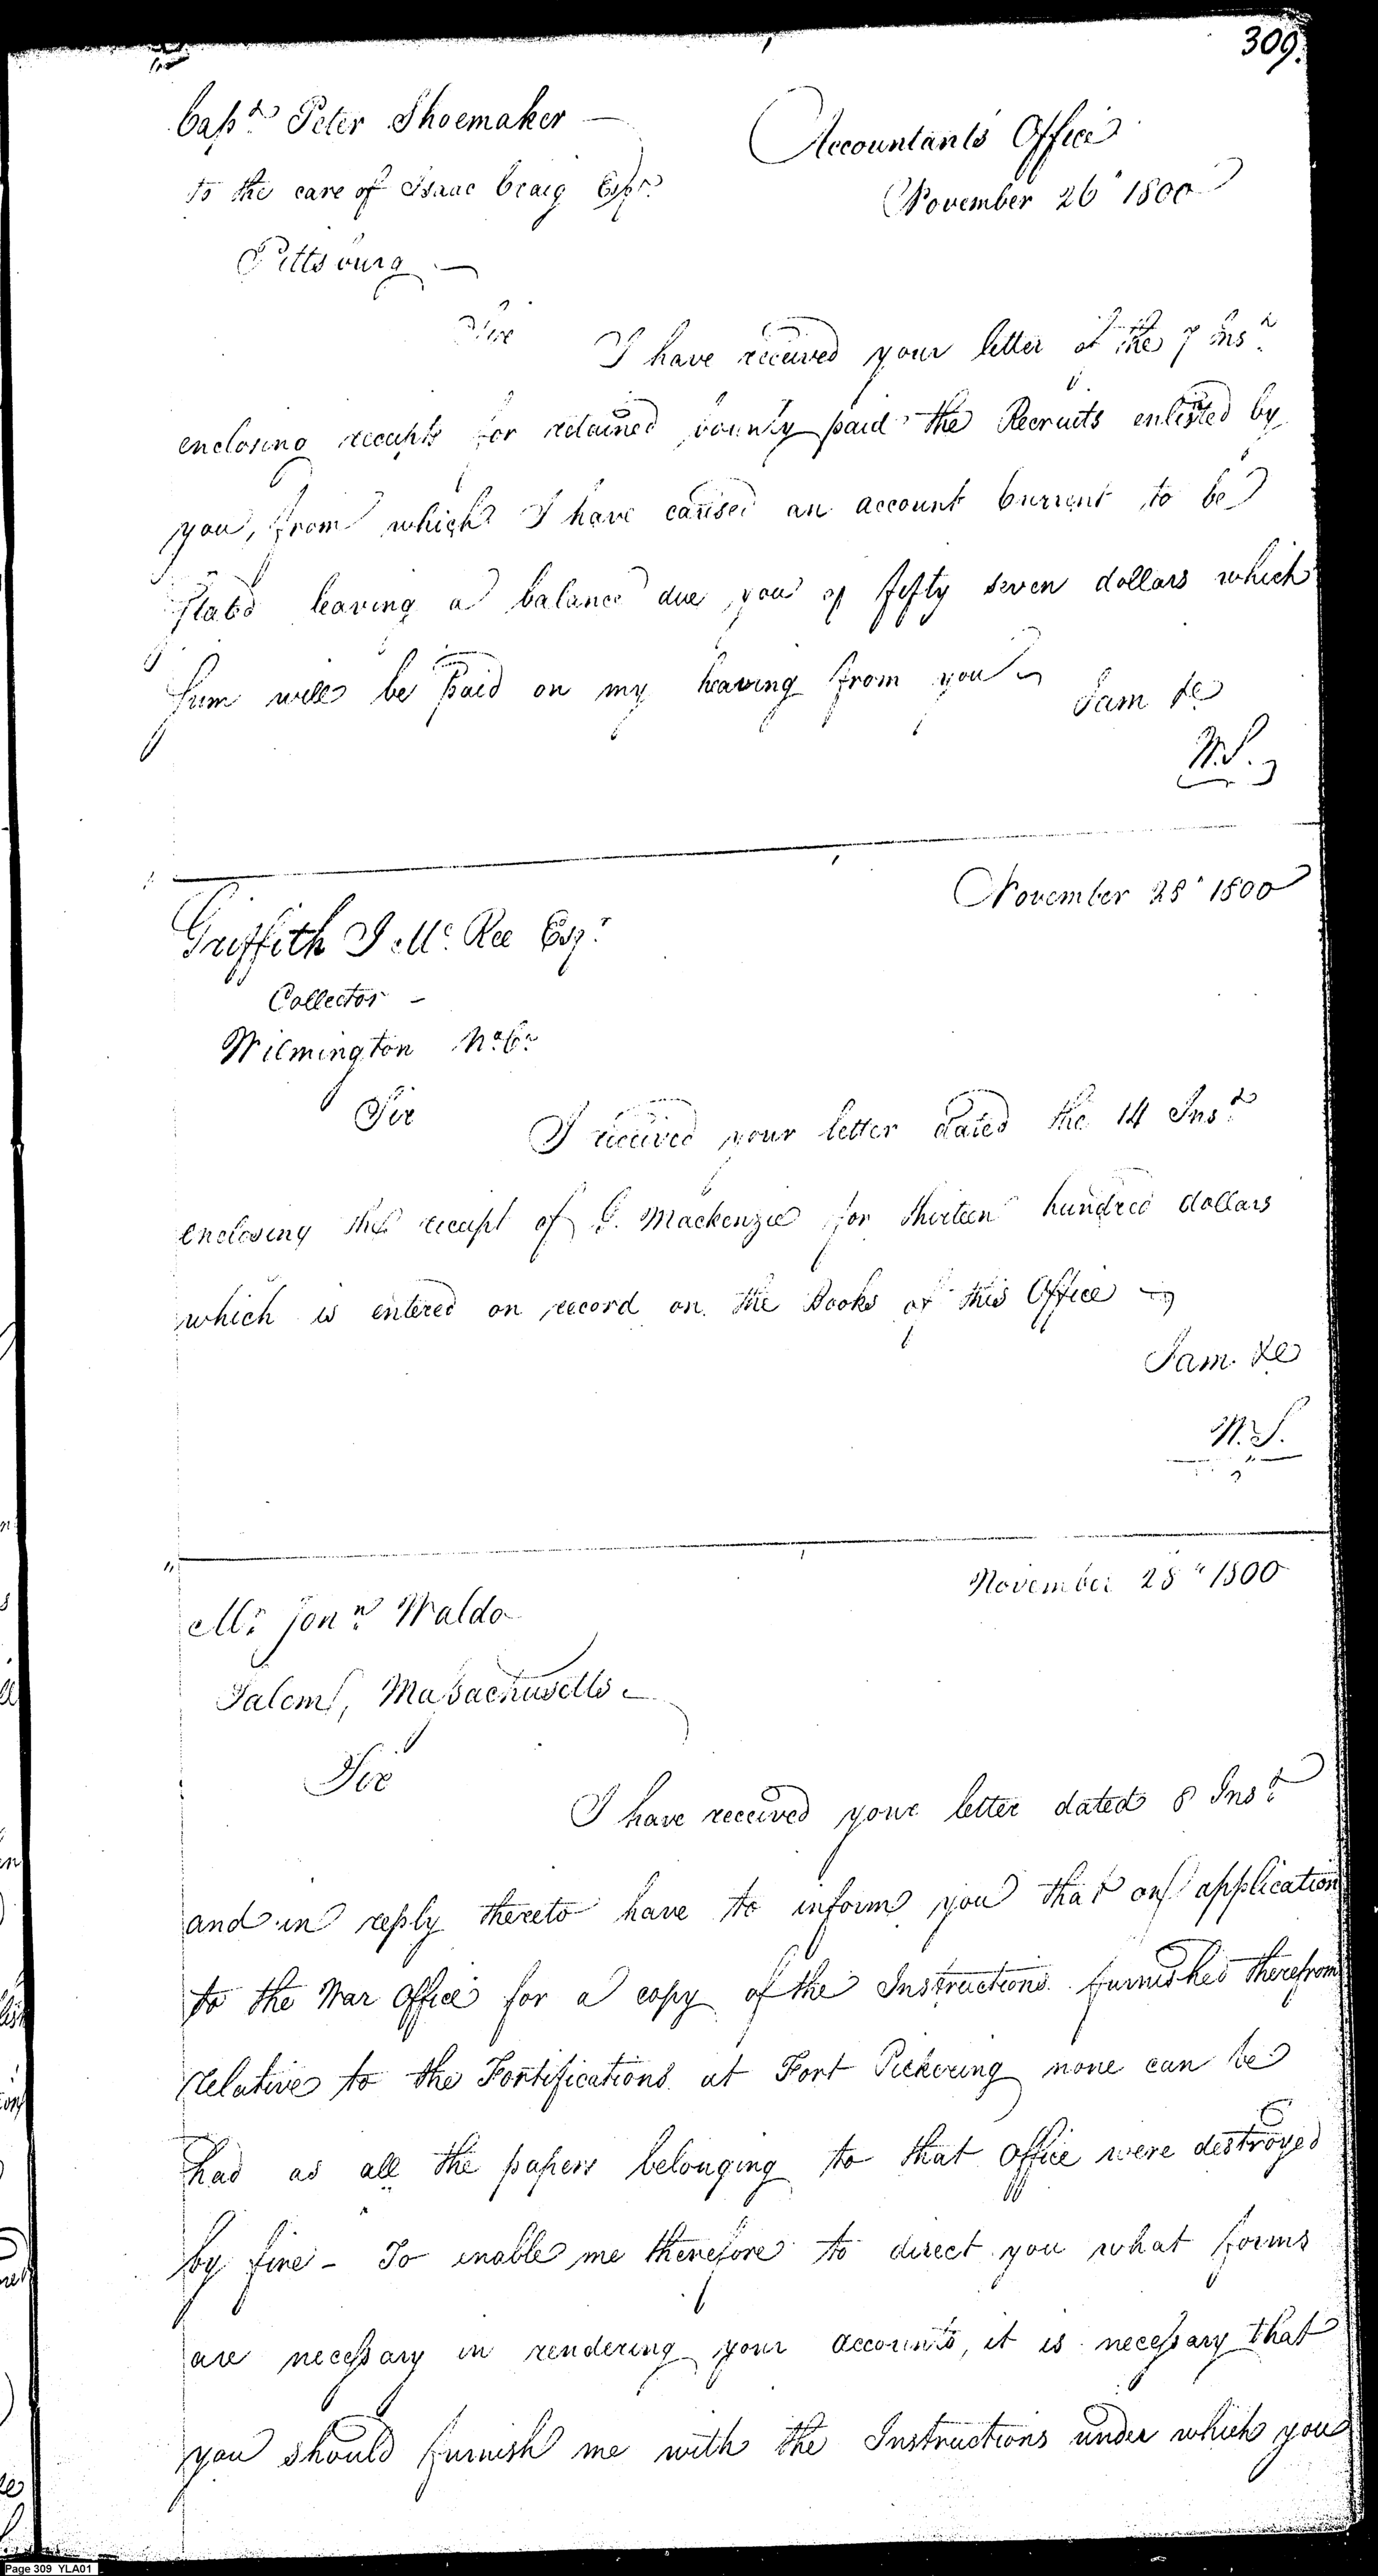 309.
Capt. Peter Shoemaker
Accountants Office
to the care of Isaac Craig Esqr.
November 26" 1800
Pittsburg
Sir
I have received your letter of the 7 Inst.
enclosing receipts for retained bounty paid the Recruits enlisted by
you, from which I have caused an account Current to be
stated leaving a balance due you of fifty seven dollars which
sum will be paid on my hearing from you
I am &c
W.S.
November 28" 1800
Griffith J McRee Esqr.
Collector -
Wilmington No. Ca.
Sir
I received your letter dated the 14 Inst.
enclosing the receipt of G. Mackenzie for thirteen hundred dollars
which is entered on record on the Books of this Office
I am &c
W.S.
November 28" 1800
Mr. Jonn. Waldo
Salem, Massachusetts
Sir
I have received your letter dated 8 Inst.
and in reply thereto have to inform you that on application
to the War Office for a copy of the Instructions furnished therefrom
relative to the Fortifications at Fort Pickering none can be
had as all the papers belonging to that Office were destroyed
by fire - To enable me therefore to direct you what forms
are necessary in rendering your accounts, it is necessary that
you should furnish me with the Instructions under which you
Page 309 YLA01